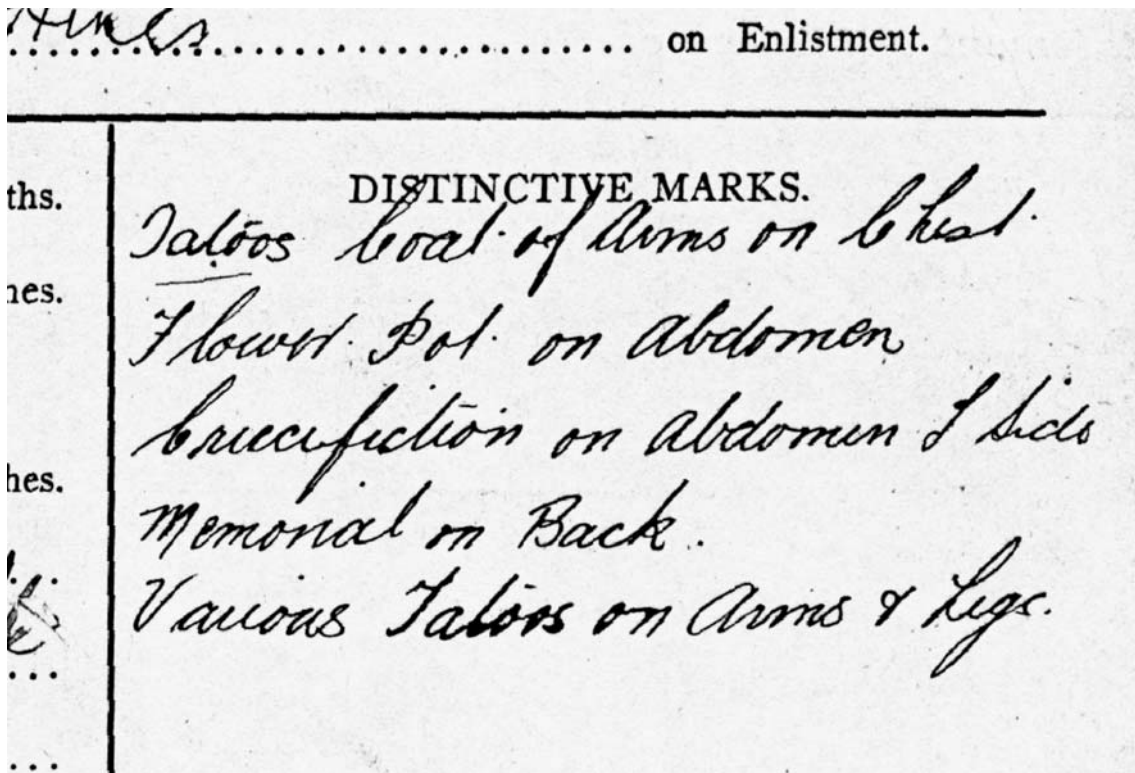 on Enlistment.
ths.
DISTINCTIVE MARKS.
Tatoos Coat of Arms on Chest.
hes.
Flower Pot on Abdomen
Crucifiction on Abdomen L Side
hes.
Memorial on Back.
Various Tatoos on Arms & Legs.